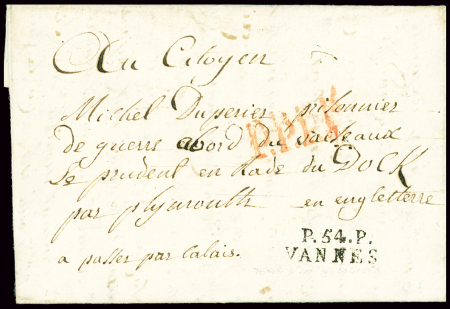 Au Citoyen
Michel Duperier prisonnier
de guerre abord du vaisseaux
Le prudent en Rade du DOCK
par plymouth en engleterre
P.54.P.
VANNES
a passer par Calais.